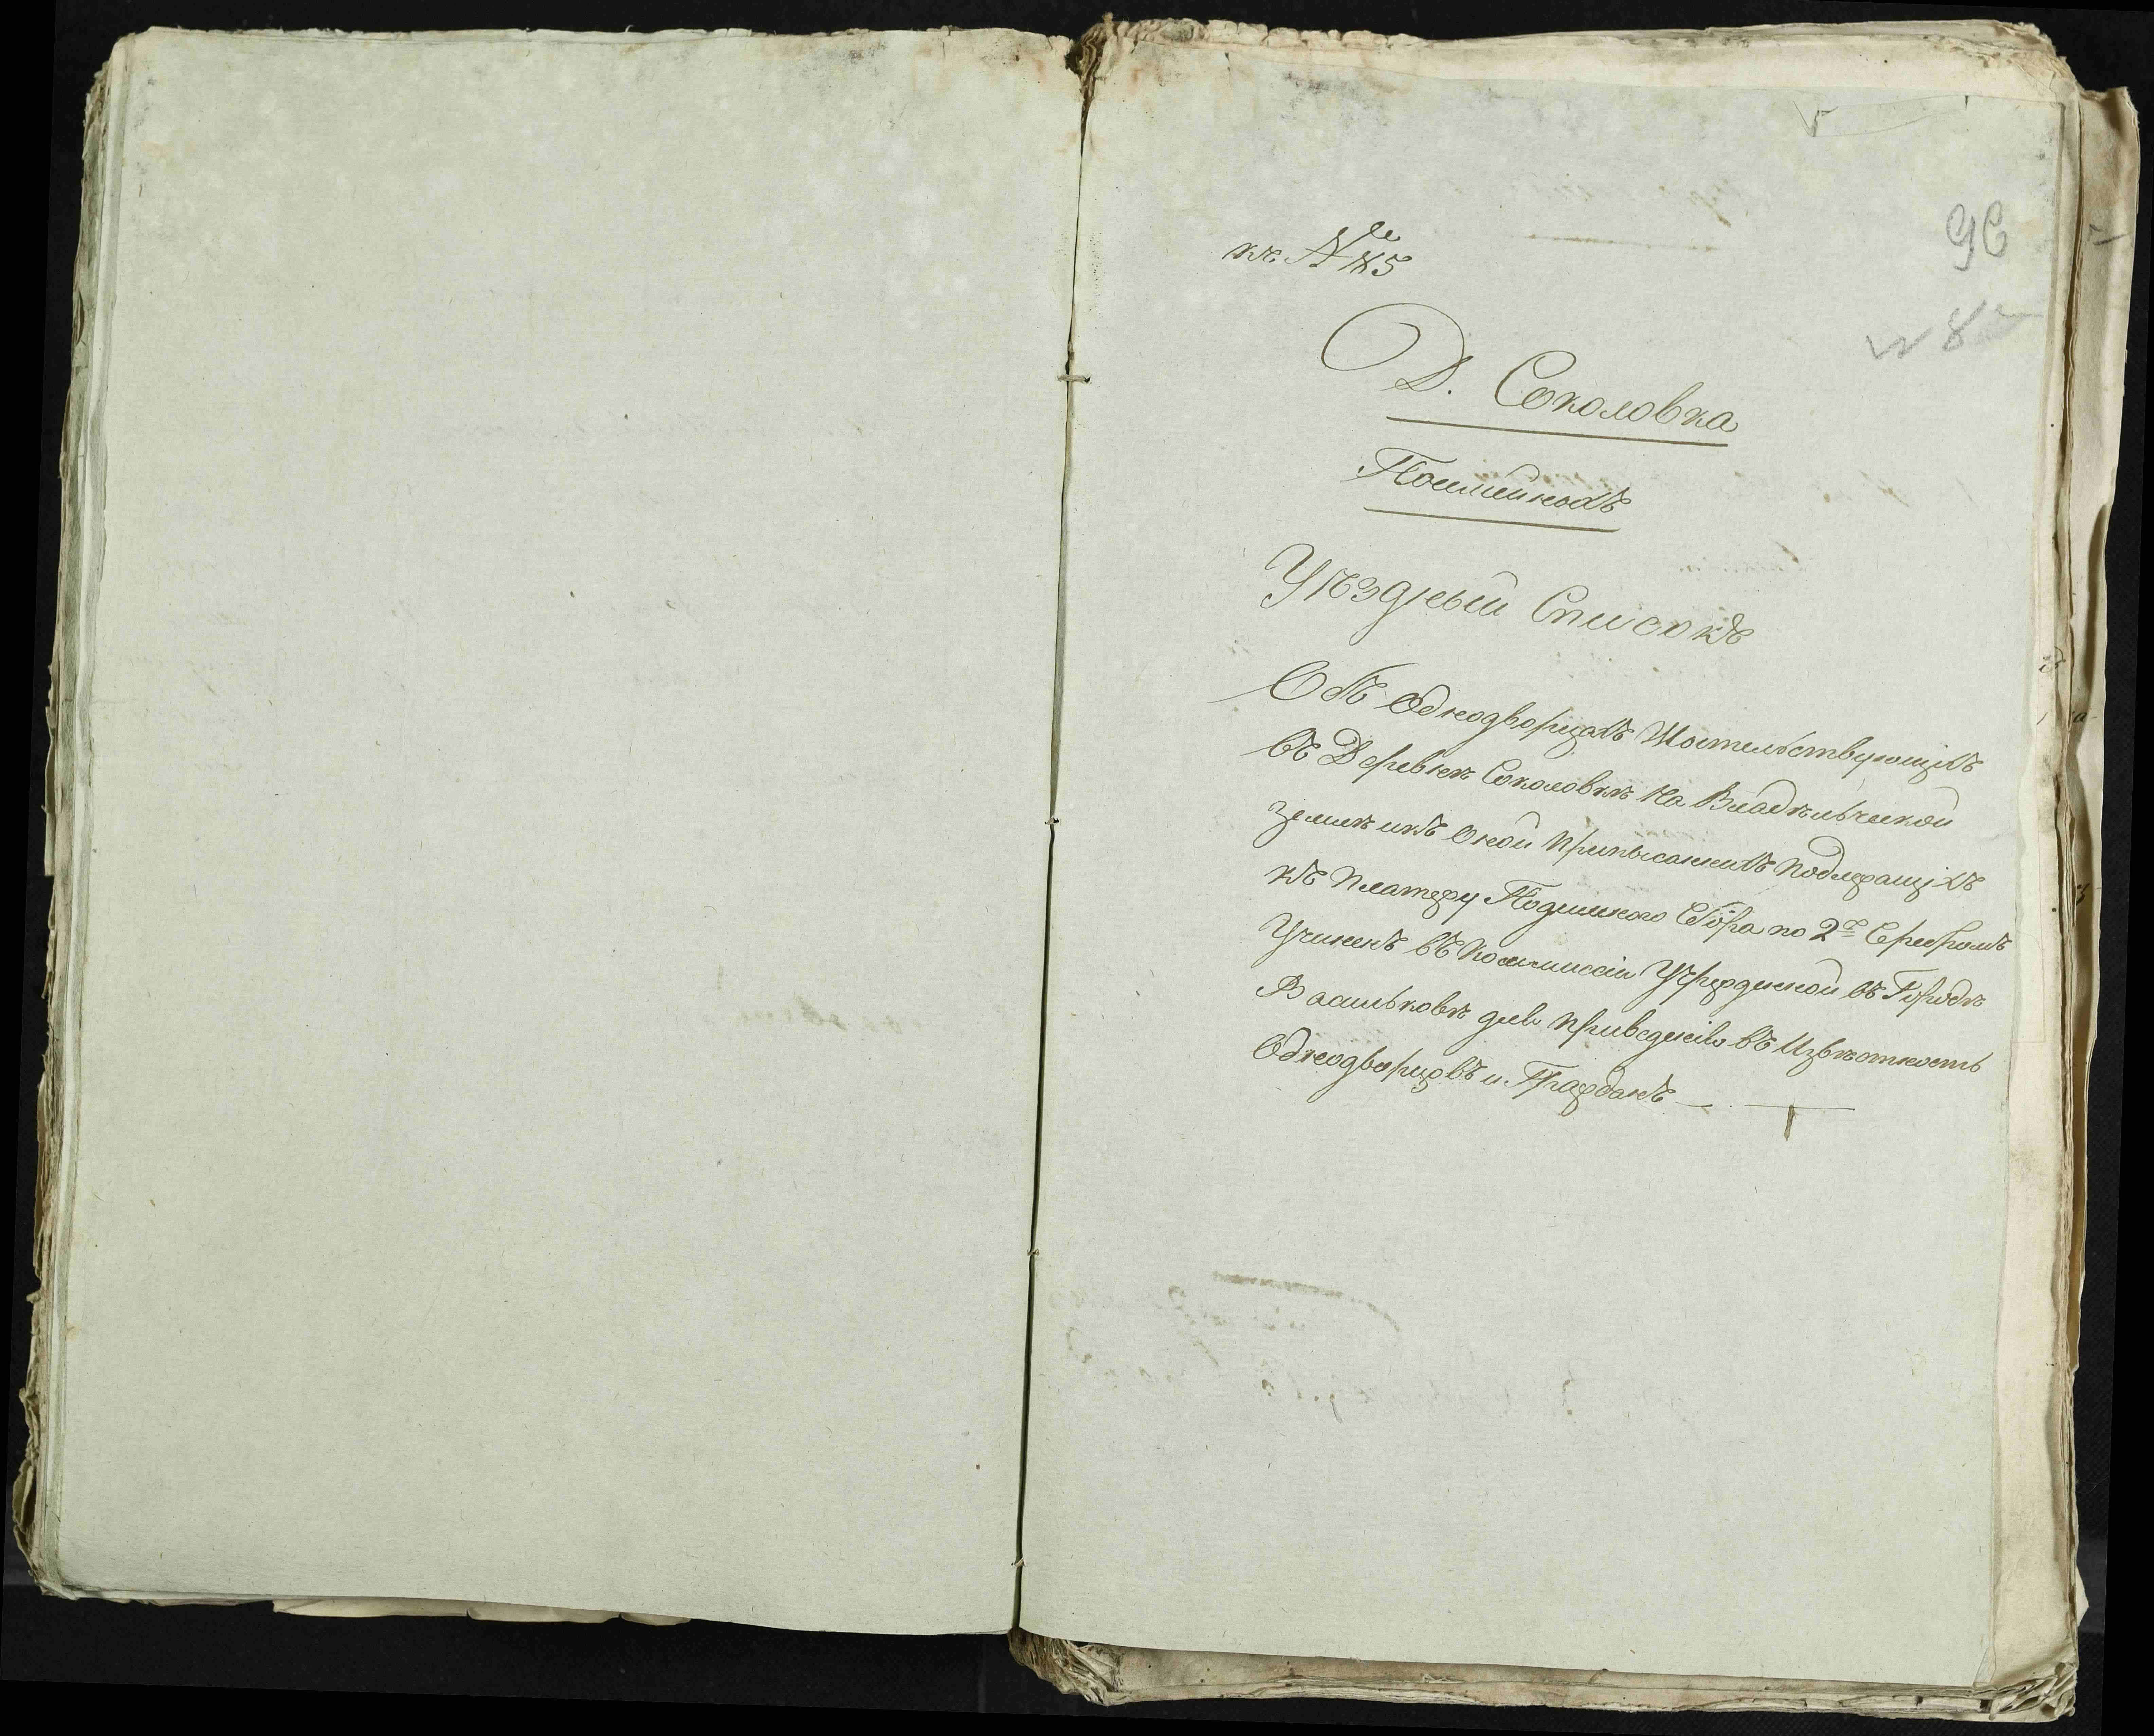 96
къ №
Д. Соколовка
Уѣздный Списокъ
Объ Однодворцахъ Жительствующихъ
въ Деревнѣ Соколовкѣ на Владѣльческой
землѣ и къ оной приписанныхъ подлежащихъ
къ платежу Подымного Сбора по 2р Сребромъ
Учиненъ въ Коммиссіи Учрежденной въ Городѣ
Васильковѣ для приведенія въ Извѣстность
Однодворцовъ и Гражданъ